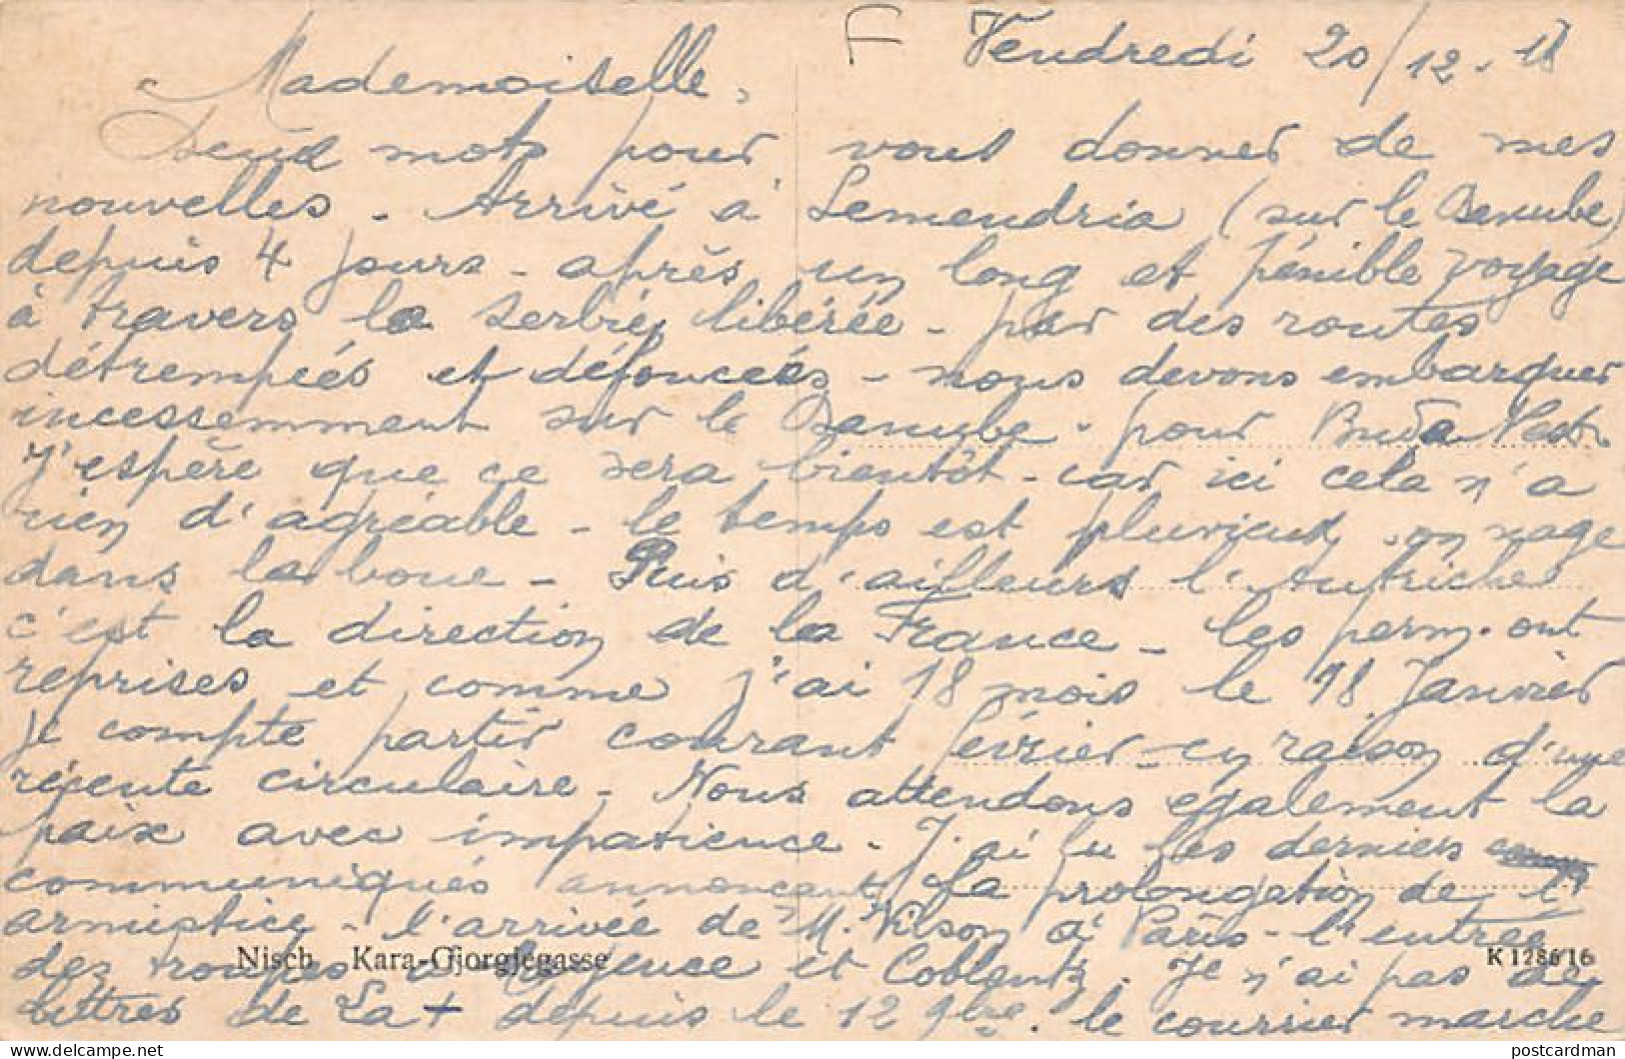 F Vendredi 20/12.18
Mademoiselle,
Deux mots pour vous donner de mes
nouvelles. Arrivé à Semendria (sur le Danube)
depuis 4 jours - après un long et pénible voyage
à travers la Serbie, libérée - par des routes
détrempées et défoncées - nous devons embarquer
incessemment sur le Danube - pour Buda Pest.
J'espère que ce sera bientôt - car ici cela n'a
rien d'agréable - le temps est pluvieux, on nage
dans la boue - Puis d'ailleurs l'Autriche
c'est la direction de la France - les perm. ont
reprises et comme j'ai 18 mois le 18 Janvier
je compte partir courant février - en raison d'une
récente circulaire - Nous attendons également la
paix avec impatience. J'ai lu les derniers
communiqués annonçant la prolongation de l'
armistice - l'arrivée de M. Wilson à Paris - l'entrée
des troupes à Mayence et Coblentz. Je n'ai pas de
lettres de La + depuis le 12 9bre. le courrier marche
Nisch Kara-Gjorgjegasse
K 1286 16
postcardman